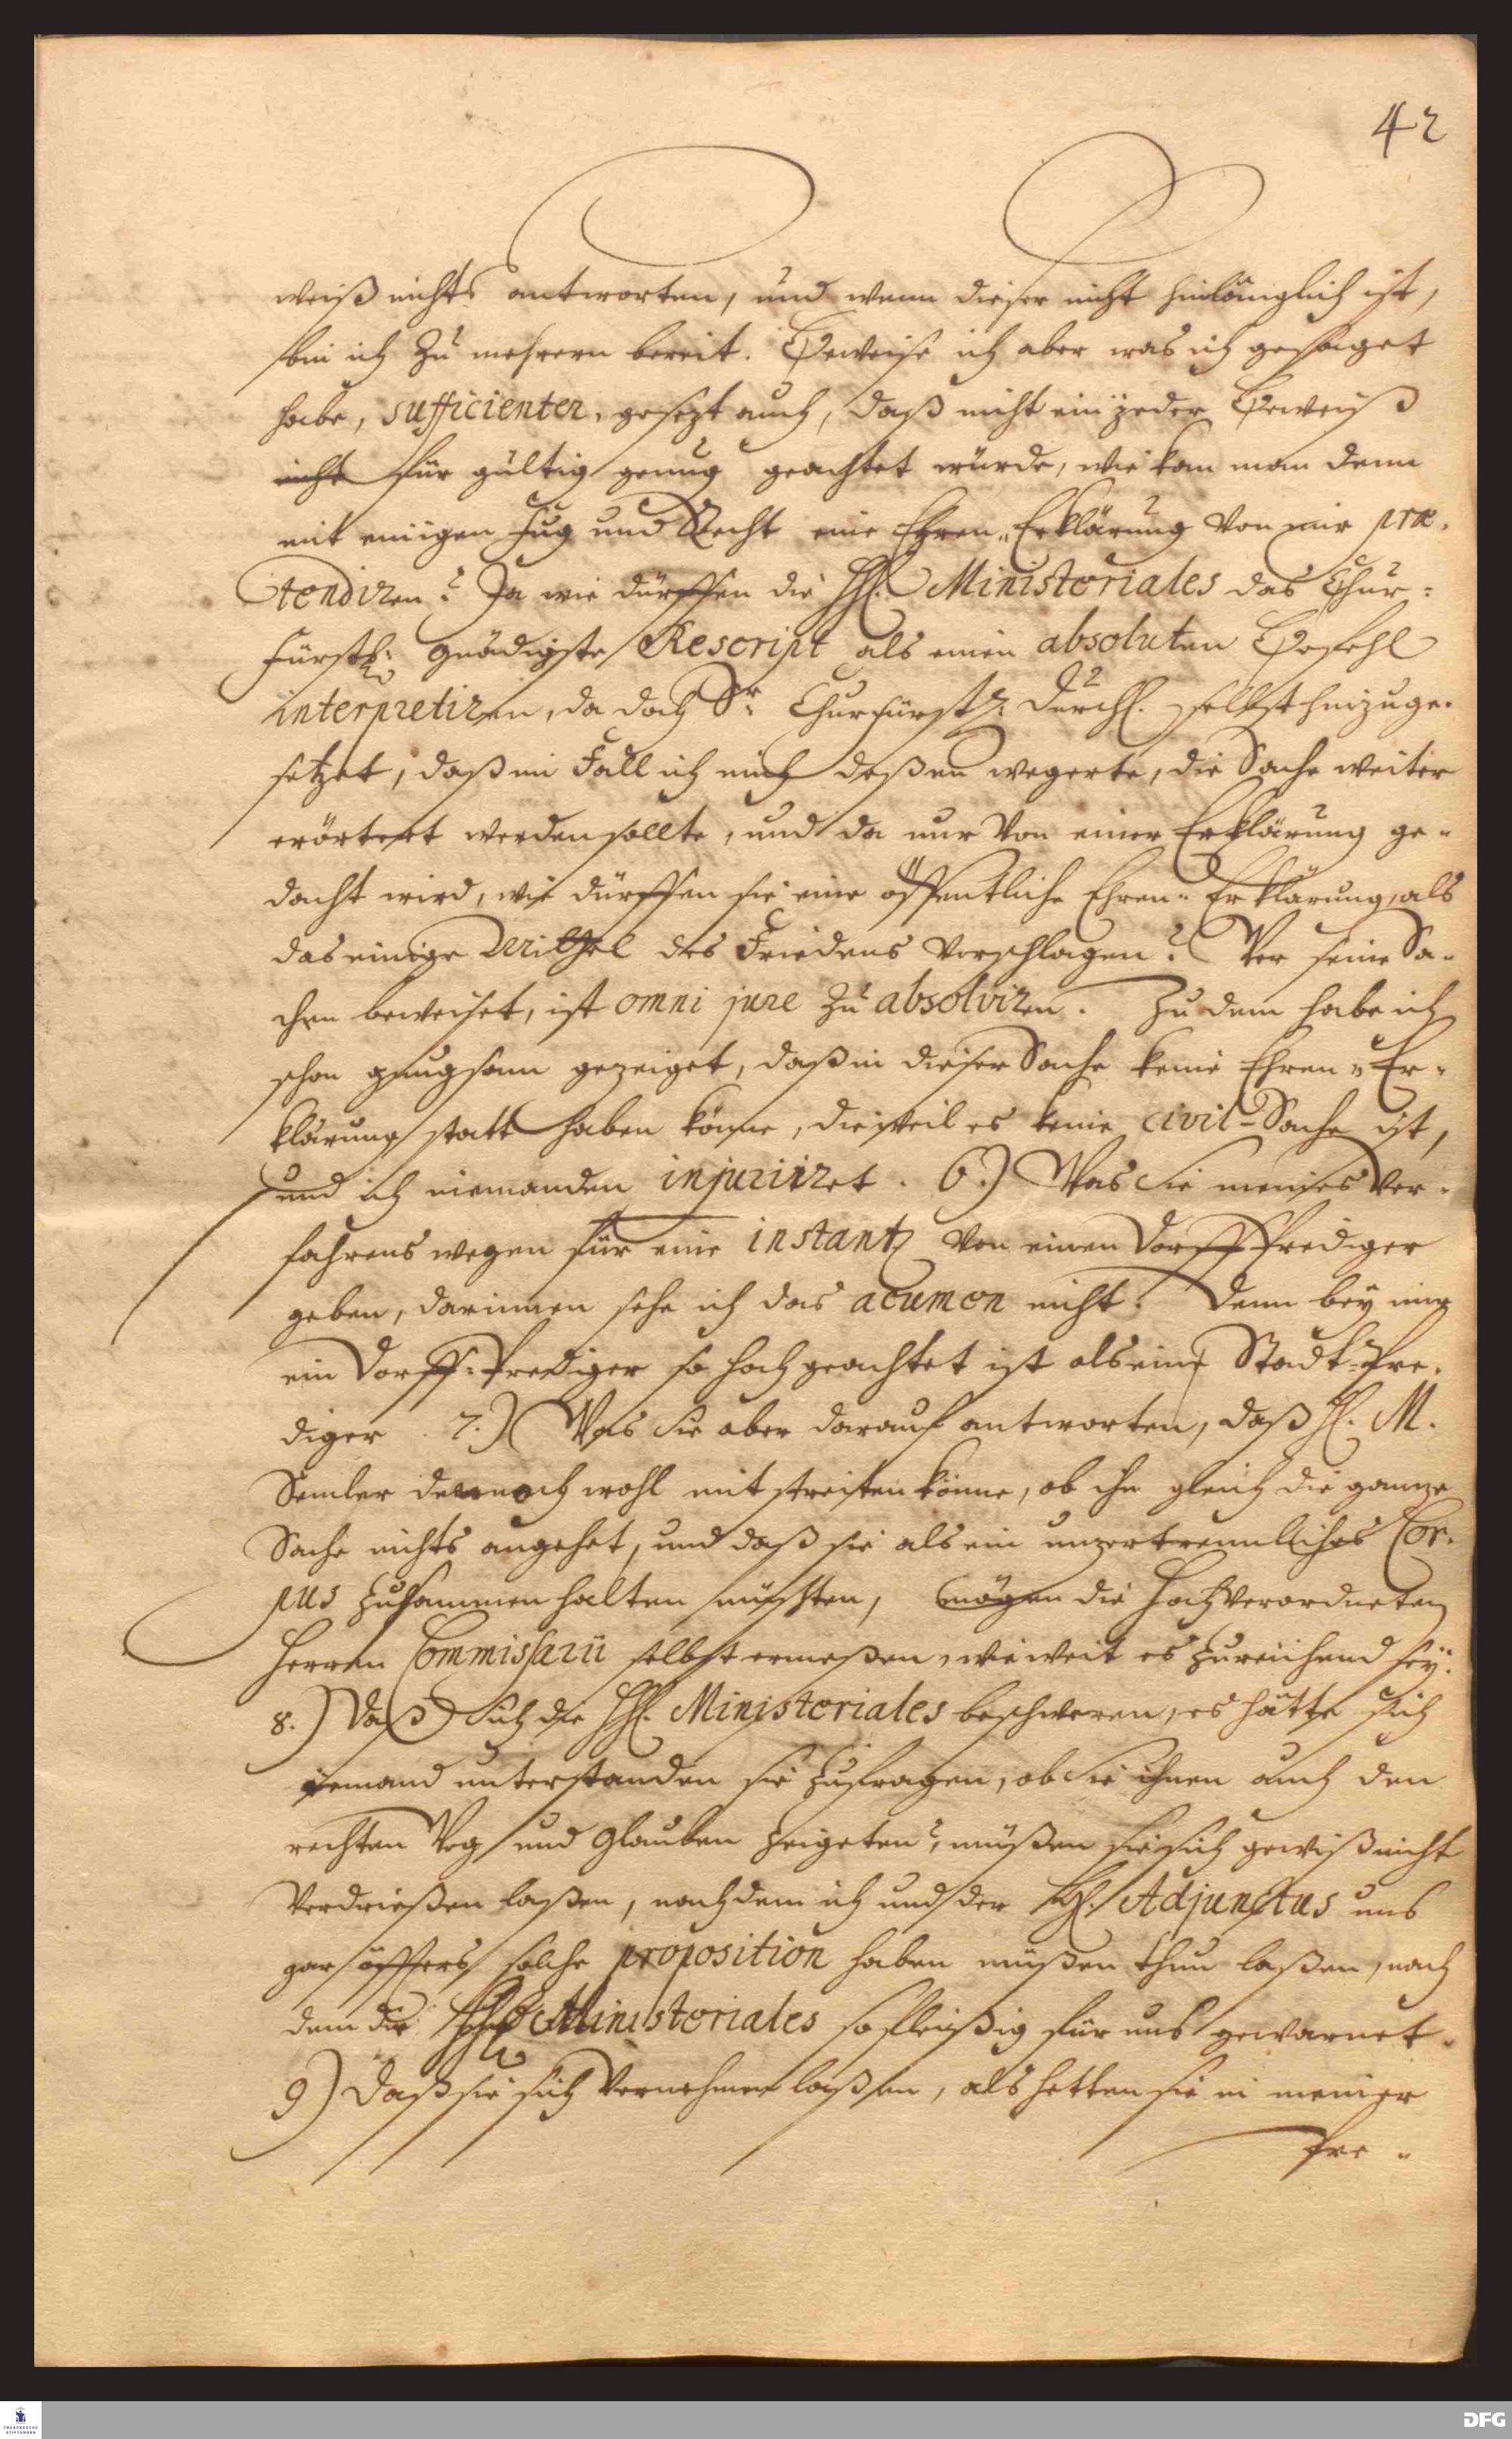 42
weiß nichts antworten, und wenn dieser nicht hinlänglich ist,
bin ich zu mehrern bereit. Beweise ich aber was ich gesaget
habe, sufficienter, gesezt auch, daß nicht ein jeder Beweiß
nicht für gültig genug geachtet würde, wie kan man denn
mit einigen Fug und Recht eine Ehren-Erklärung von mir præ-
tendiren? Ja wie dürffen die HH. Ministeriales das Chur-
Fürstl. gnädigste Rescript als einen absoluten Befehl
interpretiren, da doch Sr. Churfürstl. Durchl. selbst hinzuge-
setzet, daß im Fall ich mich deßen wegerte, die Sache weiter
erörtert werden sollte, und da nur von einer Erklärung ge-
dacht wird, wie dürffen sie eine öffentliche Ehren-Erklärung, als
das einige Mittel des Friedens vorschlagen? Wer seine Sa-
chen beweiset, ist omni jure zu absolviren. Zu dem habe ich
schon gnugsam gezeiget, daß in dieser Sache keine Ehren-Er-
klärung statt haben könne, dieweil es keine civil-Sache ist,
und ich niemanden injuriiret. 6.) Was sie meines Ver-
fahrens wegen für eine instantz von einen Dorff Prediger
geben, darinnen sehe ich das acumen nicht. Denn bey mir
ein Dorff-Prediger so hoch geachtet ist als eine Stadt-Pre-
diger. 7.) Was sie aber darauf antworten, daß H. M.
Semler dennoch wohl mit streiten könne, ob ihn gleich die gantze
Sache nichts angehet, und daß sie als ein unzertrennliches Cor-
pus zusammen halten müsten, mögen die Hochverordneten
Herren Commissarii selbst ermeßen, wie weit es zureichend sey.
8.) Daß sich die HH. Ministeriales beschweren, es hätte sich
jemand unterstanden sie zufragen, ob sie ihnen auch den
rechten Weg und Glauben zeigeten?, müßen sie sich gewiß nicht
verdrießen laßen, nachdem ich und der H. Adjunctus uns
gar öffters solche proposition haben müßen thun laßen, nach
dem die HH. Ministeriales so fleißig für uns gewarnet.
9) Daß sie sich vernehmen laßen, als hetten sie in meiner
Pre-
FRANCKESCHE
STIFTUNGEN
DFG